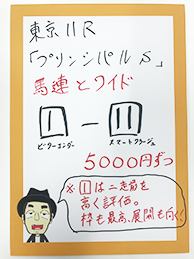 東京11R
「プリンシパルS」
馬連とワイド
1 — 11
ビターエンダー
スマートクラージュ
5000円ずつ
※ 11は二走前を
高く評価。
枠も最高、展開も向く